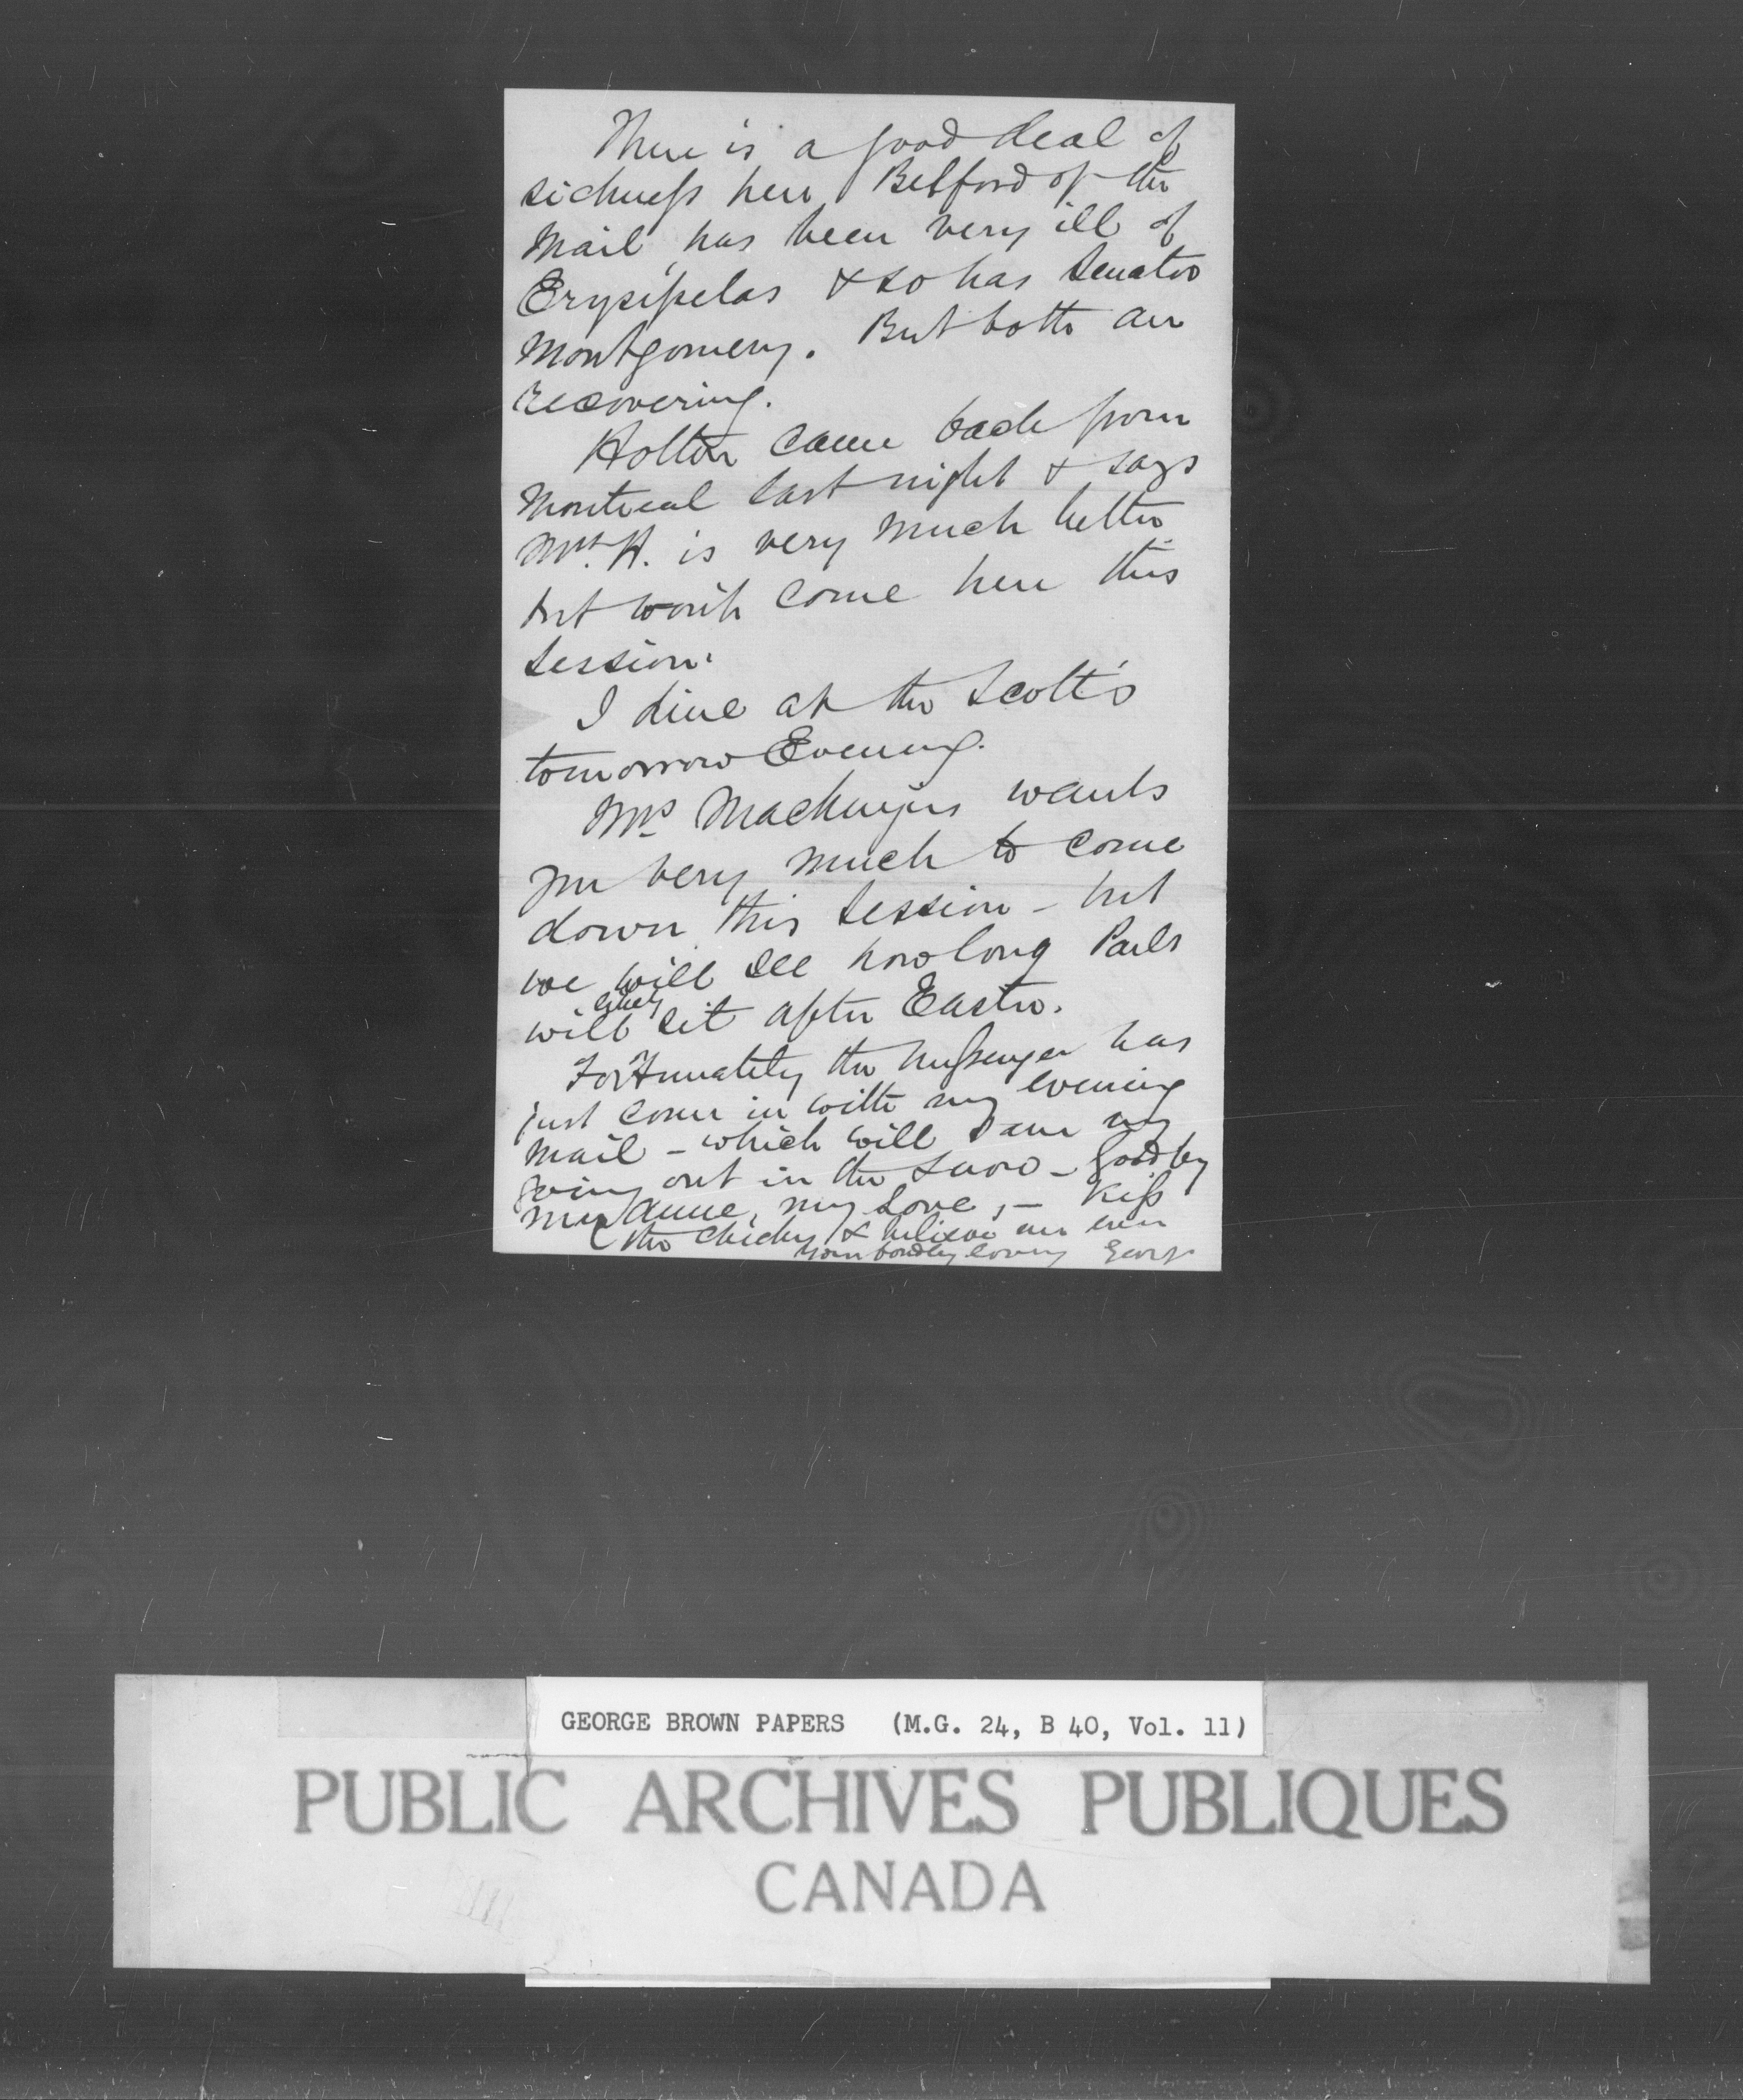 There is a good deal of
sickness here Belford of the
Mail has been very ill of
Erysipelas & so has Senator
Montgomery. But both are
recovering.
Holton came back from
Montreal last night & says
Mrs. H. is very much better
but won't come here this
session.
I dine at the Scott's
tomorrow Evening.
Mrs Mackenzie wants
you very much to come
down this Session - but
we will see how long Parlt
likely
will sit after Easter.
Fortunately the messenger has
just come in with my evening
mail - which will save my
going out in the snow - Good by
my Anne, my Love, - Kiss
the chicks & believe me ever
Your fondly loving George
GEORGE BROWN PAPERS (M.G. 24, B 40, Vol. 11)
PUBLIC ARCHIVES PUBLIQUES
CANADA